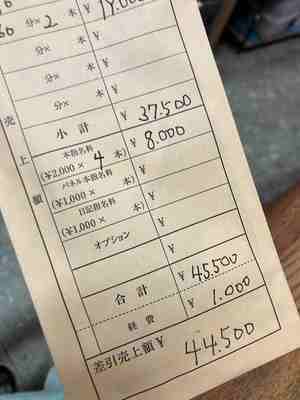 60 分× 2 本 ¥ 19.000
分× 本 ¥
分× 本 ¥
分× 本 ¥
売上額
小計 ¥ 37.500
本指名料 (¥2,000× 4 本) ¥ 8.000
パネル本指名料 (¥1,000× 本) ¥
日記指名料 (¥1,000× 本) ¥
オプション ¥
¥
合計 ¥ 45.500
経費 ¥ 1.000
差引売上額 ¥ 44.500